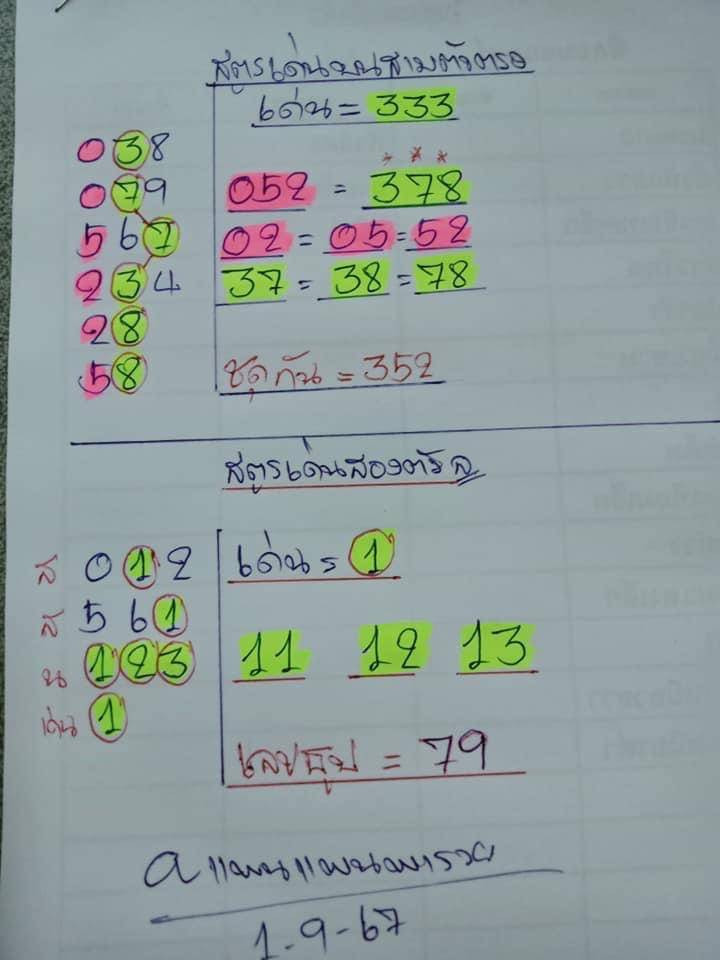 สูตรเด่นบนสามตัวตรง
เด่น = 333
038
079
567
234
28
58
052 = 378
02 = 05 = 52
37 = 38 = 78
ชุดกัน = 352
สูตรเด่นสองตัวล่าง
ส 012
ส 561
น 123
เด่น 1
เด่น = 1
11 12 13
เลขธูป = 79
1-9-67